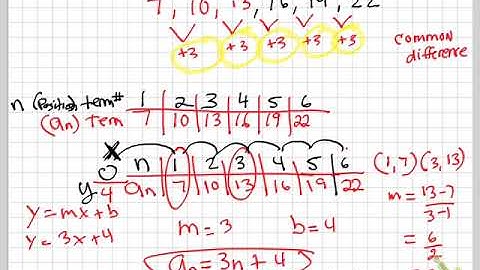 7, 10, 13, 16, 19, 22
+3 +3 +3 +3 +3
common
difference
n (Position) term# 1 2 3 4 5 6
(an) term 7 10 13 16 19 22
x 0 n 1 2 3 4 5 6
y 4 an 7 10 13 16 19 22
(1,7) (3,13)
y = mx + b
y = 3x + 4
m = 3 b = 4
m = 13-7
3-1
= 6
2
an = 3n + 4